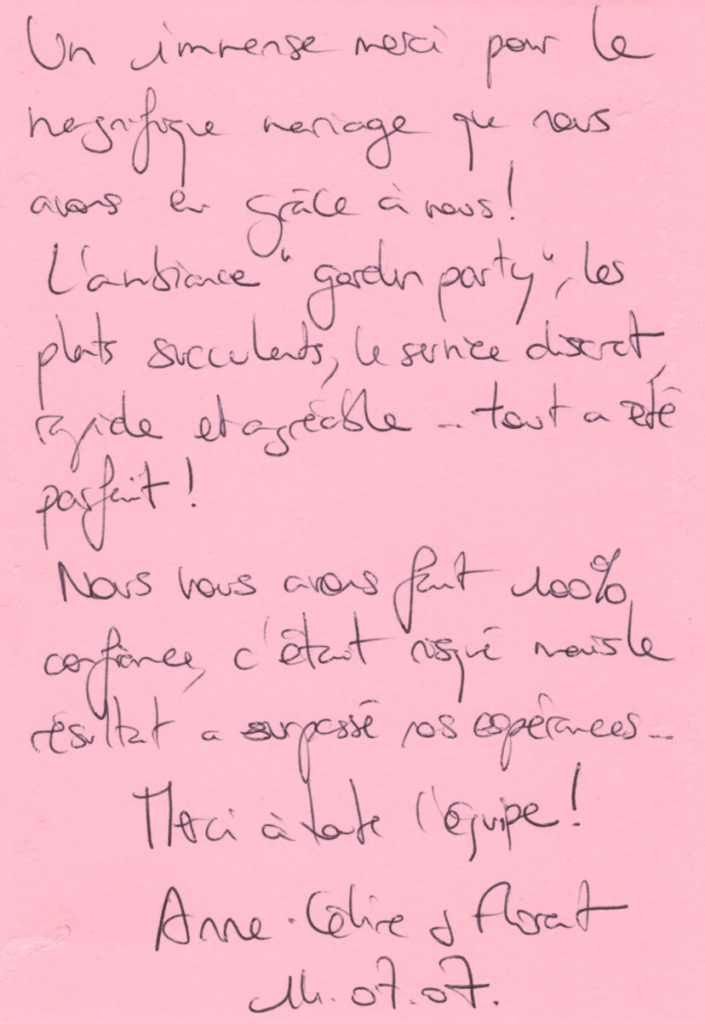 Un immense merci pour le
magnifique mariage que nous
avons eu grâce à vous!
L'ambiance "garden party", les
plats succulents, le service discret,
rapide et agréable... tout a été
parfait!
Nous vous avons fait 100%
confiance, c'était risqué mais le
résultat a surpassé nos espérances...
Merci à toute l'équipe!
Anne-Céline & Florent
14.07.07.